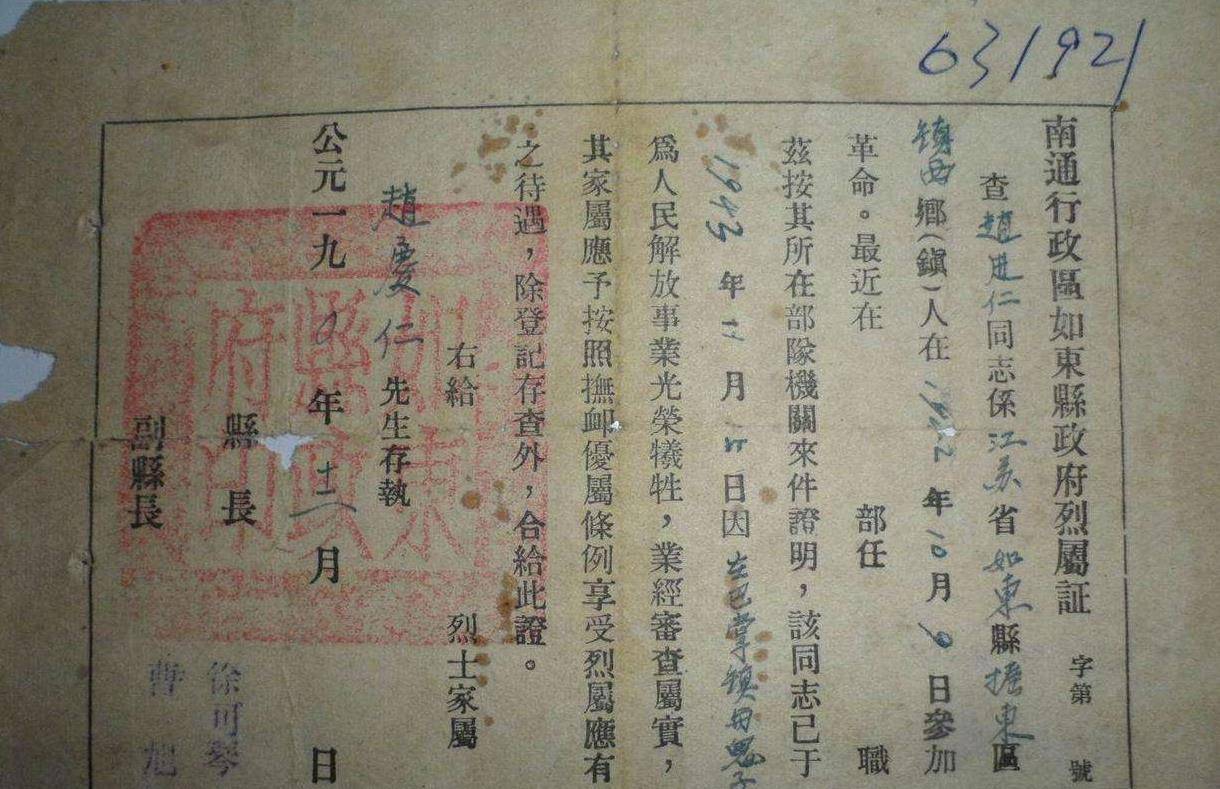 631921
南通行政區如東縣政府烈屬証 字第 號
查趙進仁同志係江苏省如東縣掘東區
镇西鄉(鎭)人在 年10月 日參加
革命。最近在 部任 職
茲按其所在部隊機關來件證明，該同志已于
1943年 月 日因 镇
爲人民解放事業光榮犧牲，業經審查屬實，
其家屬應予按照撫卹優屬條例享受烈屬應有
之待遇，除登記存查外，合給此證。
右給 烈士家屬
趙慶仁先生存執
公元一九 年十二月 日
縣長 徐可琴
副縣長 曹旭
如東縣政府印